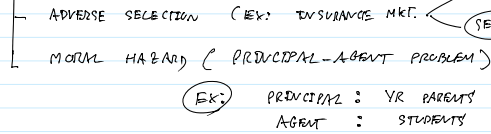 ADVERSE SELECTION (EX: INSURANCE MKT.
SE
MORAL HAZARD (PRINCIPAL-AGENT PROBLEM)
EX: PRINCIPAL : YR PARENTS
AGENT : STUDENTS